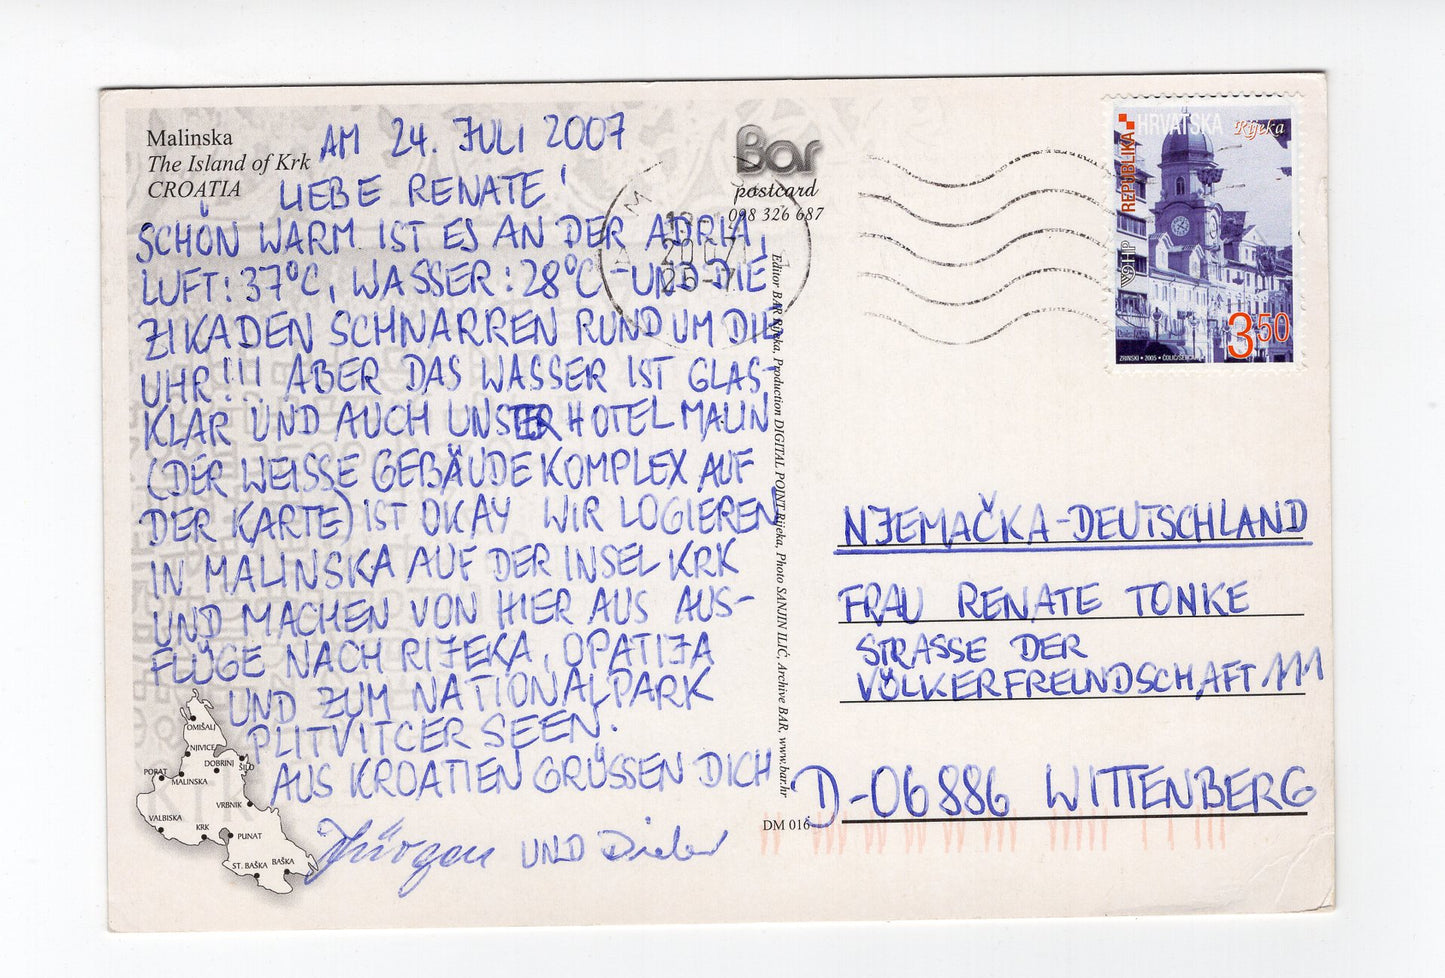 Malinska
The Island of Krk
CROATIA
AM 24. JULI 2007
LIEBE RENATE!
SCHÖN WARM IST ES AN DER ADRIA,
LUFT: 37°C, WASSER: 28°C - UND DIE
ZIKADEN SCHNARREN RUND UM DIE
UHR!!! ABER DAS WASSER IST GLAS-
KLAR UND AUCH UNSER HOTEL MALIN
(DER WEISSE GEBÄUDEKOMPLEX AUF
DER KARTE) IST OKAY WIR LOGIEREN
IN MALINSKA AUF DER INSEL KRK
UND MACHEN VON HIER AUS AUS-
FLÜGE NACH RIJEKA, OPATIJA
UND ZUM NATIONALPARK
PLITVITCER SEEN.
AUS KROATIEN GRÜSSEN DICH
Jürgen UND Dieter
OMIŠALJ
NJIVICE
DOBRINJ
ŠILO
PORAT
MALINSKA
VRBNIK
KRK
VALBISKA
KRK
PUNAT
ST. BAŠKA
BAŠKA
Bar
postcard
098 326 687
2007
25-7
Editor BAR Rijeka, Production DIGITAL POINT Rijeka, Photo SANJIN ILIĆ, Archive BAR, www.bar.hr
DM 016
REPUBLIKA
HRVATSKA
Rijeka
HP
3.50
ZRINSKI • 2005 • ČULIĆ/ŠERCAR
NJEMAČKA-DEUTSCHLAND
FRAU RENATE TONKE
STRASSE DER
VÖLKERFREUNDSCHAFT 111
D-06886 WITTENBERG